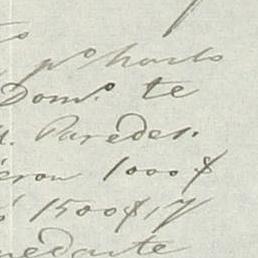 pº harto
Domº te
Paredes.
eron 1000 $
1500 $, y
medante